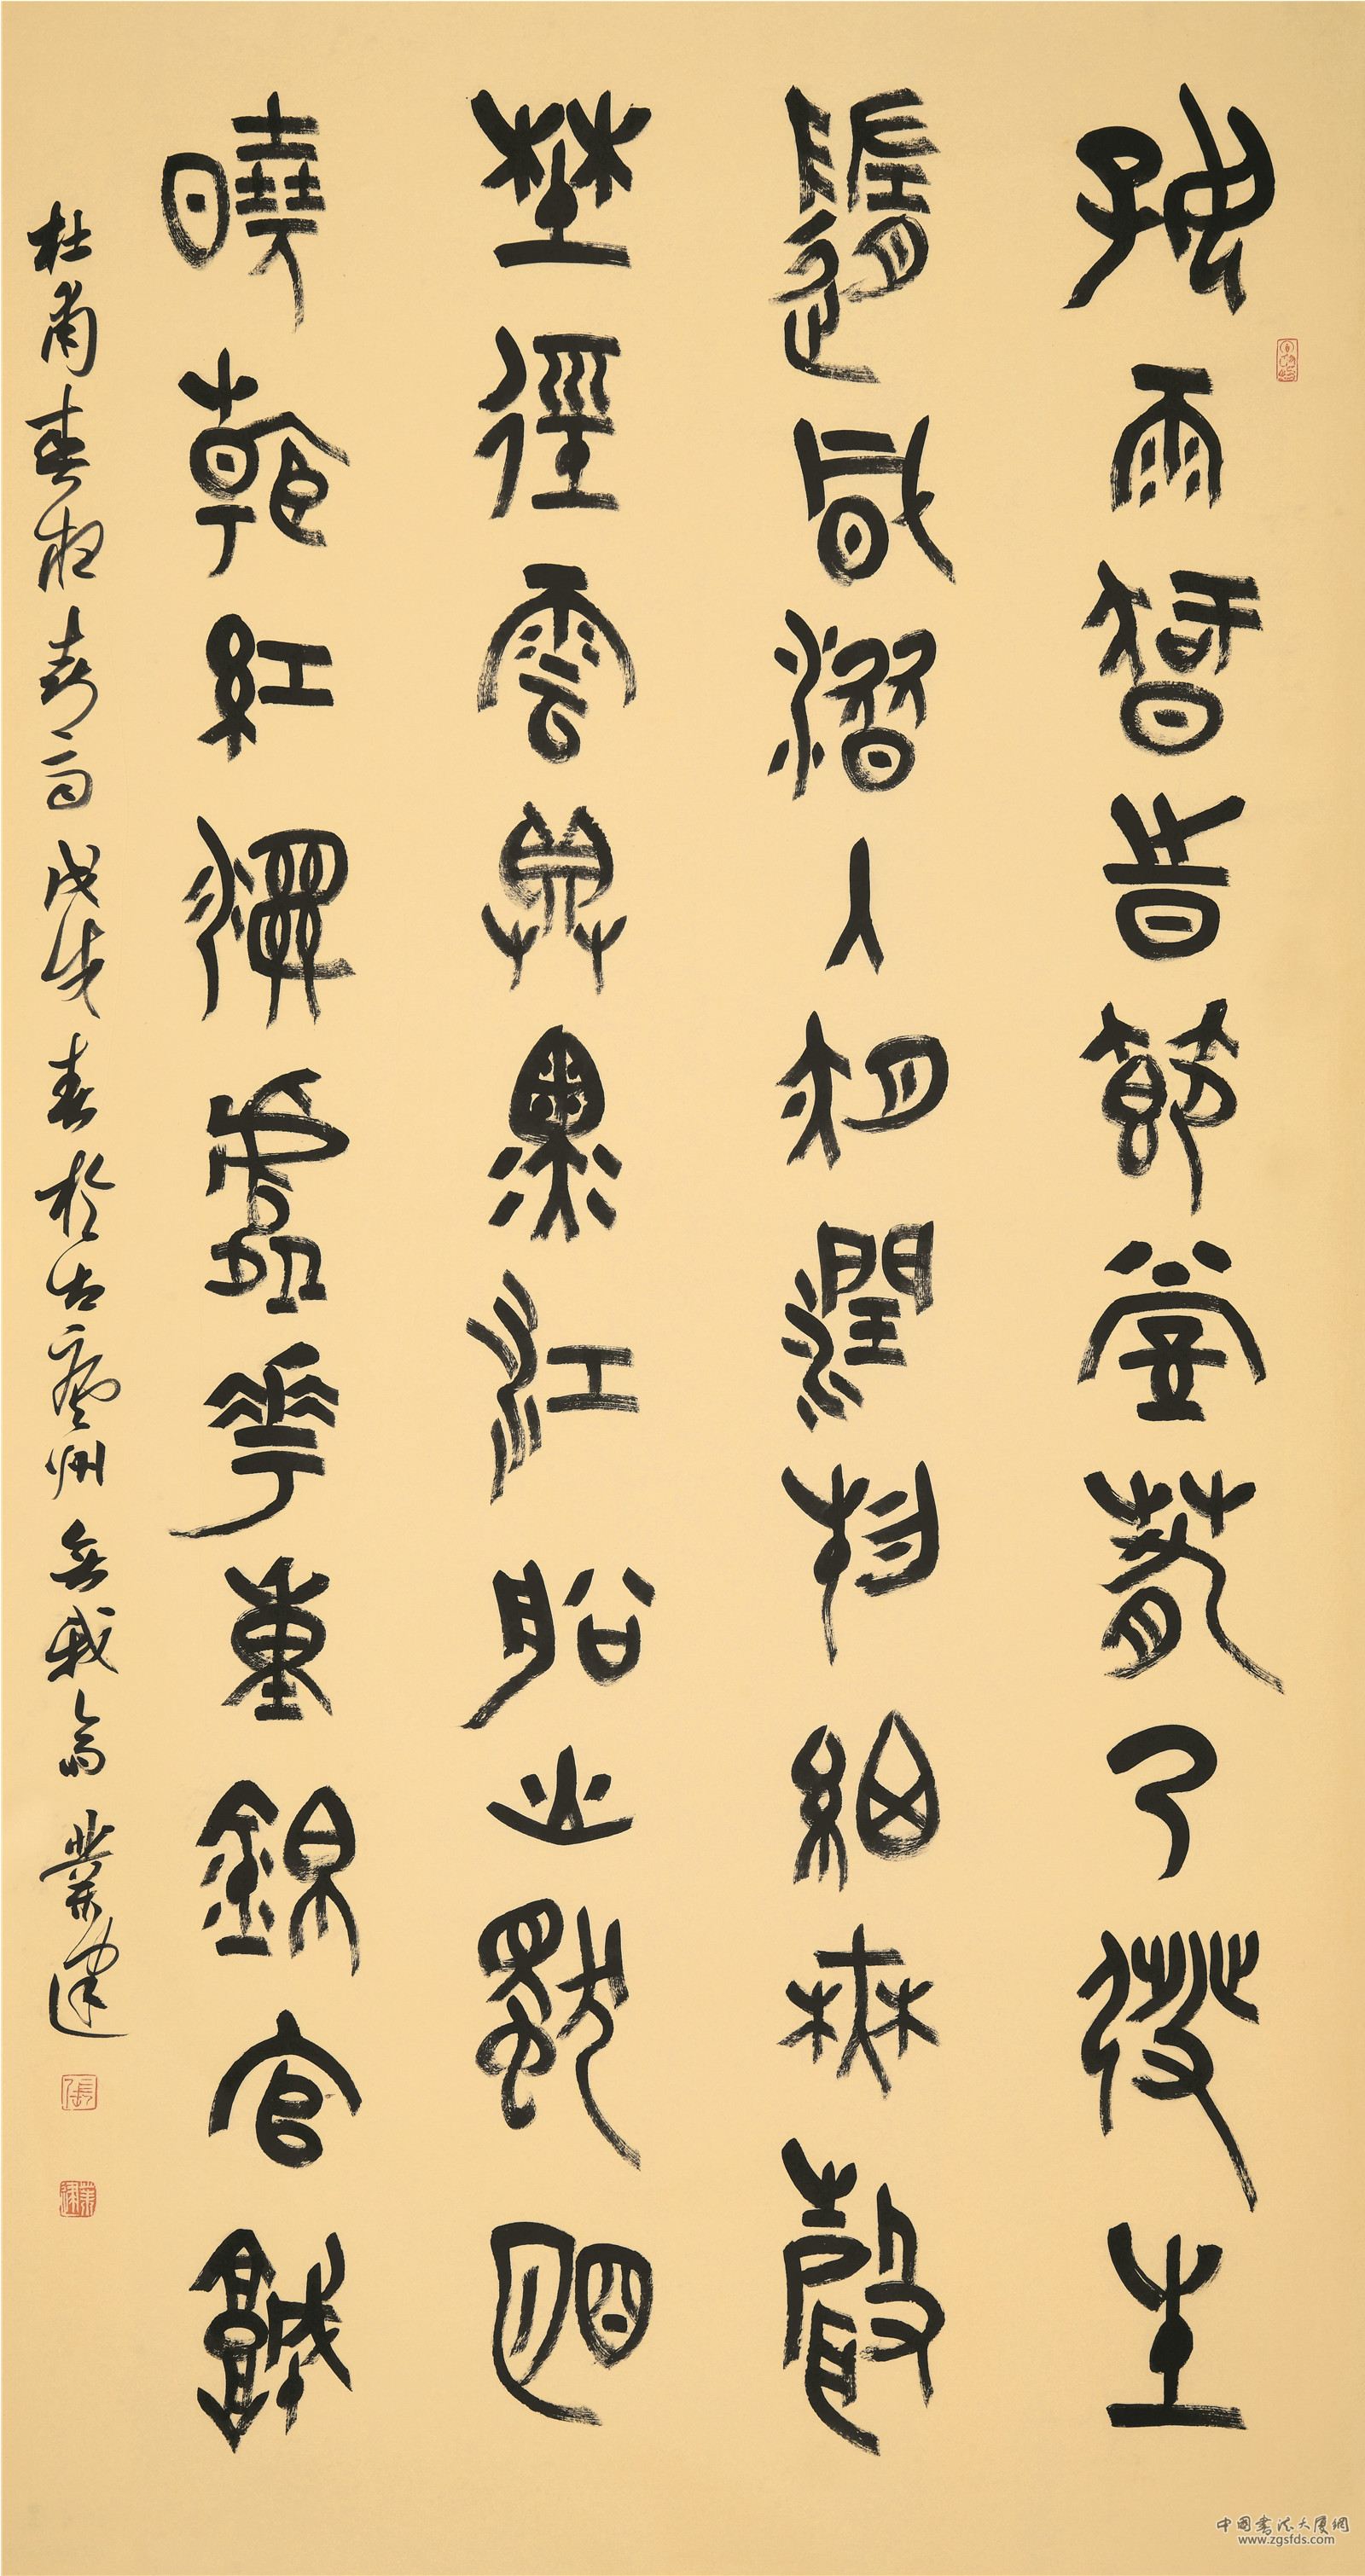 好雨知時節當春乃發生
隨風潛入夜潤物細無聲
野徑雲俱黑江船火獨明
曉看紅濕處花重錦官城
杜甫春夜喜雨戊戌春於古夔州無我齋業建
張
業建
中国书法大厦網
www.zgsfds.com